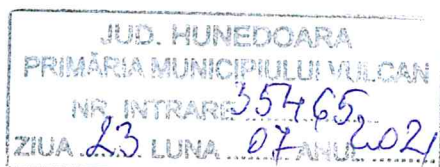 JUD. HUNEDOARA
PRIMĂRIA MUNICIPIULUI VULCAN
NR. INTRARE 35465
ZIUA 23 LUNA 07 ANUL 2021